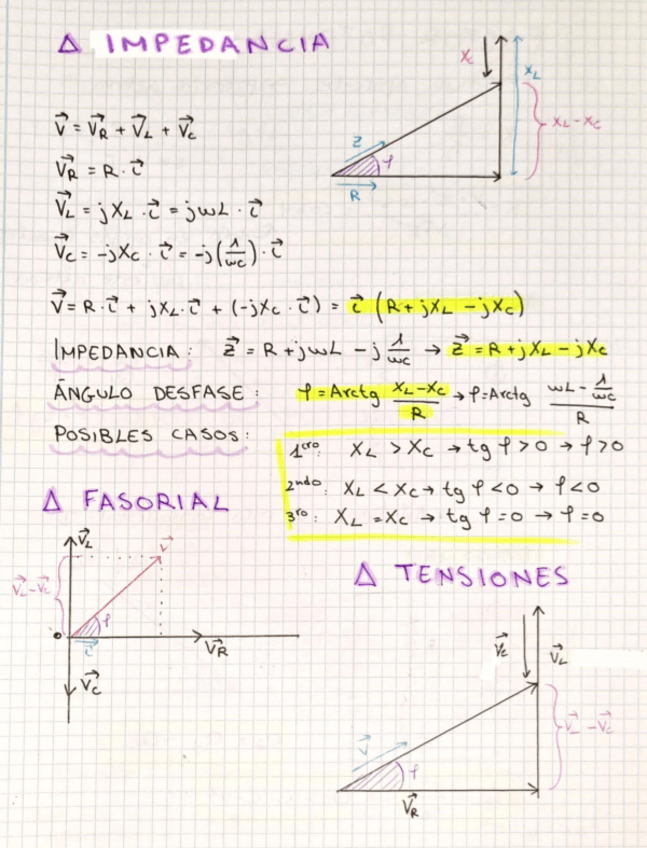 Δ IMPEDANCIA
Xc
XL
XL-Xc
Z
φ
R
V⃗ = V⃗R + V⃗L + V⃗c
V⃗R = R · i⃗
V⃗L = jXL · i⃗ = jωL · i⃗
V⃗c = -jXc · i⃗ = -j(1/ωc) · i⃗
V⃗ = R · i⃗ + jXL · i⃗ + (-jXc · i⃗) = i⃗ (R+jXL -jXc)
IMPEDANCIA: Z⃗ = R + jωL - j 1/ωc → Z⃗ = R+jXL - jXc
ÁNGULO DESFASE: φ = Arctg (XL-Xc)/R → φ=Arctg (ωL - 1/ωc)/R
POSIBLES CASOS:
1cro: XL > Xc → tg φ > 0 → φ > 0
2ndo: XL < Xc → tg φ < 0 → φ < 0
3ro: XL = Xc → tg φ = 0 → φ = 0
Δ FASORIAL
V⃗L
V⃗
V⃗L-V⃗c
φ
o
i⃗
V⃗R
V⃗c
Δ TENSIONES
V⃗c
V⃗L
V⃗L - V⃗c
V⃗
φ
V⃗R